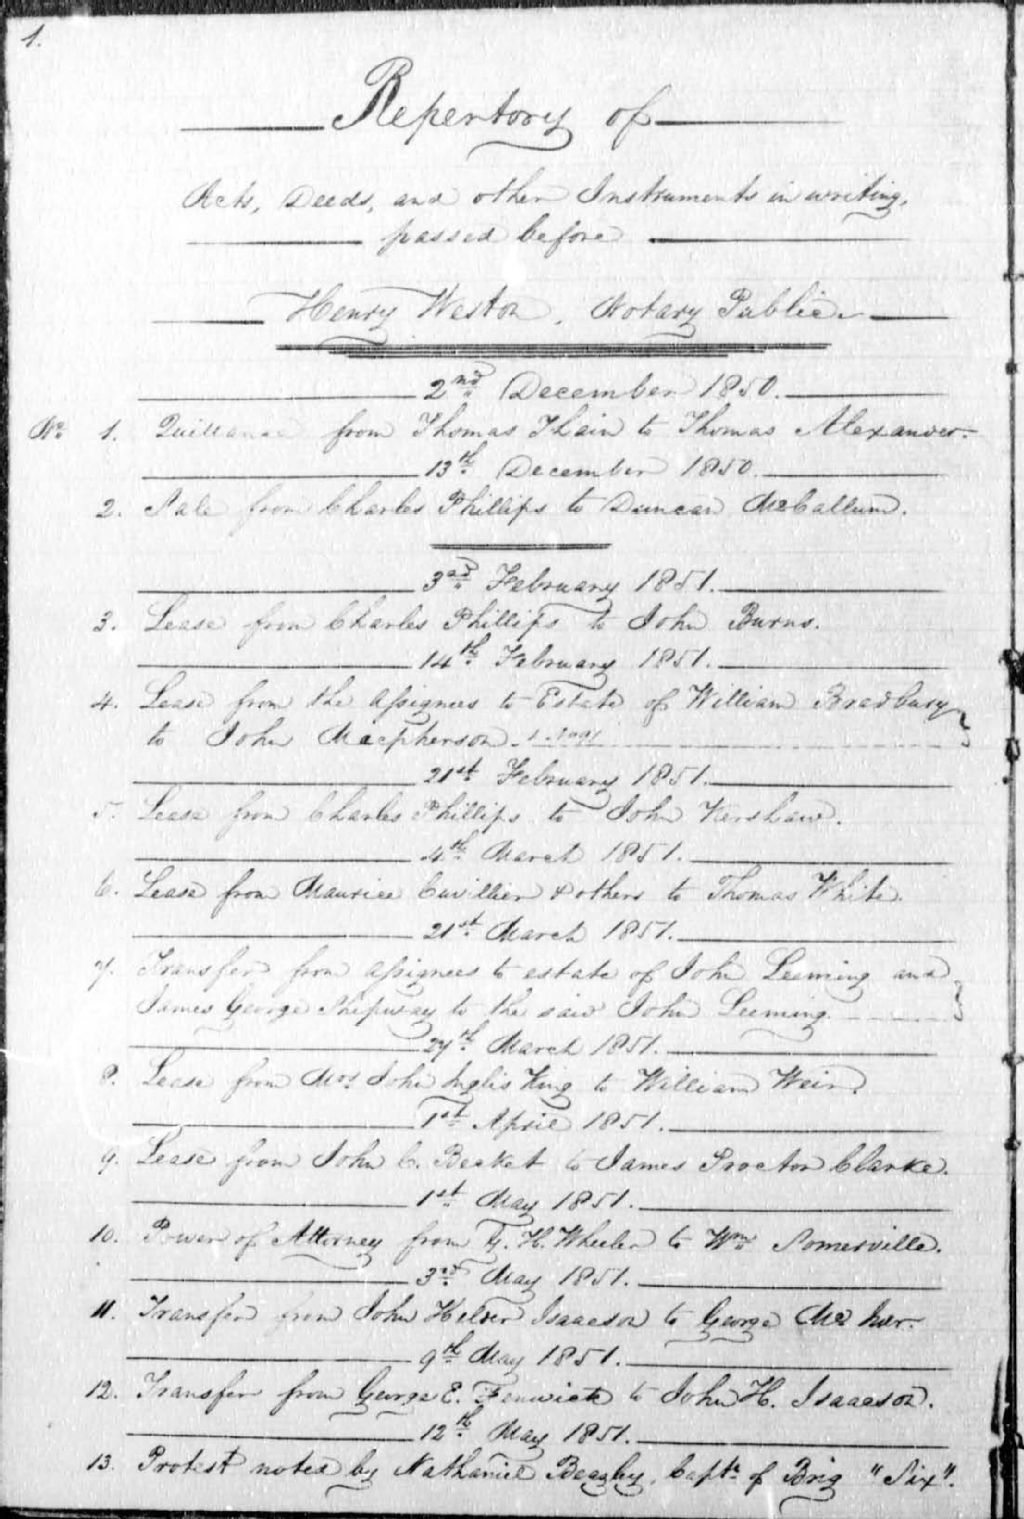 1.
Repertory of
Acts, Deeds, and other Instruments in writing,
passed before
Henry Weston, Notary Public
2nd December 1850.
No. 1. Quittance from Thomas Thain to Thomas Alexander.
13th December 1850.
2. Sale from Charles Phillips to Duncan McCallum.
3rd February 1851.
3. Lease from Charles Phillips to John Burns.
14th February 1851.
4. Lease from the Assignees to Estate of William Bradbury
to John Macpherson.
21st February 1851.
5. Lease from Charles Phillips to John Kershaw.
4th March 1851.
6. Lease from Maurice Cuvillier & others to Thomas White.
21st March 1851.
7. Transfer from Assignees to estate of John Leeming and
James George Shipway to the said John Leeming
27th March 1851.
8. Lease from Mrs John Inglis King to William Weir.
1st April 1851.
9. Lease from John C. Becket to James Proctor Clarke.
1st May 1851.
10. Power of Attorney from H. Wheeler to Wm Somerville.
3rd May 1851.
11. Transfer from John Helder Isaacson to George Mc Iver.
9th May 1851.
12. Transfer from George E. Fenwick to John H. Isaacson.
12th May 1851.
13. Protest noted by Nathaniel Beazley, Capt. of Brig "Six".